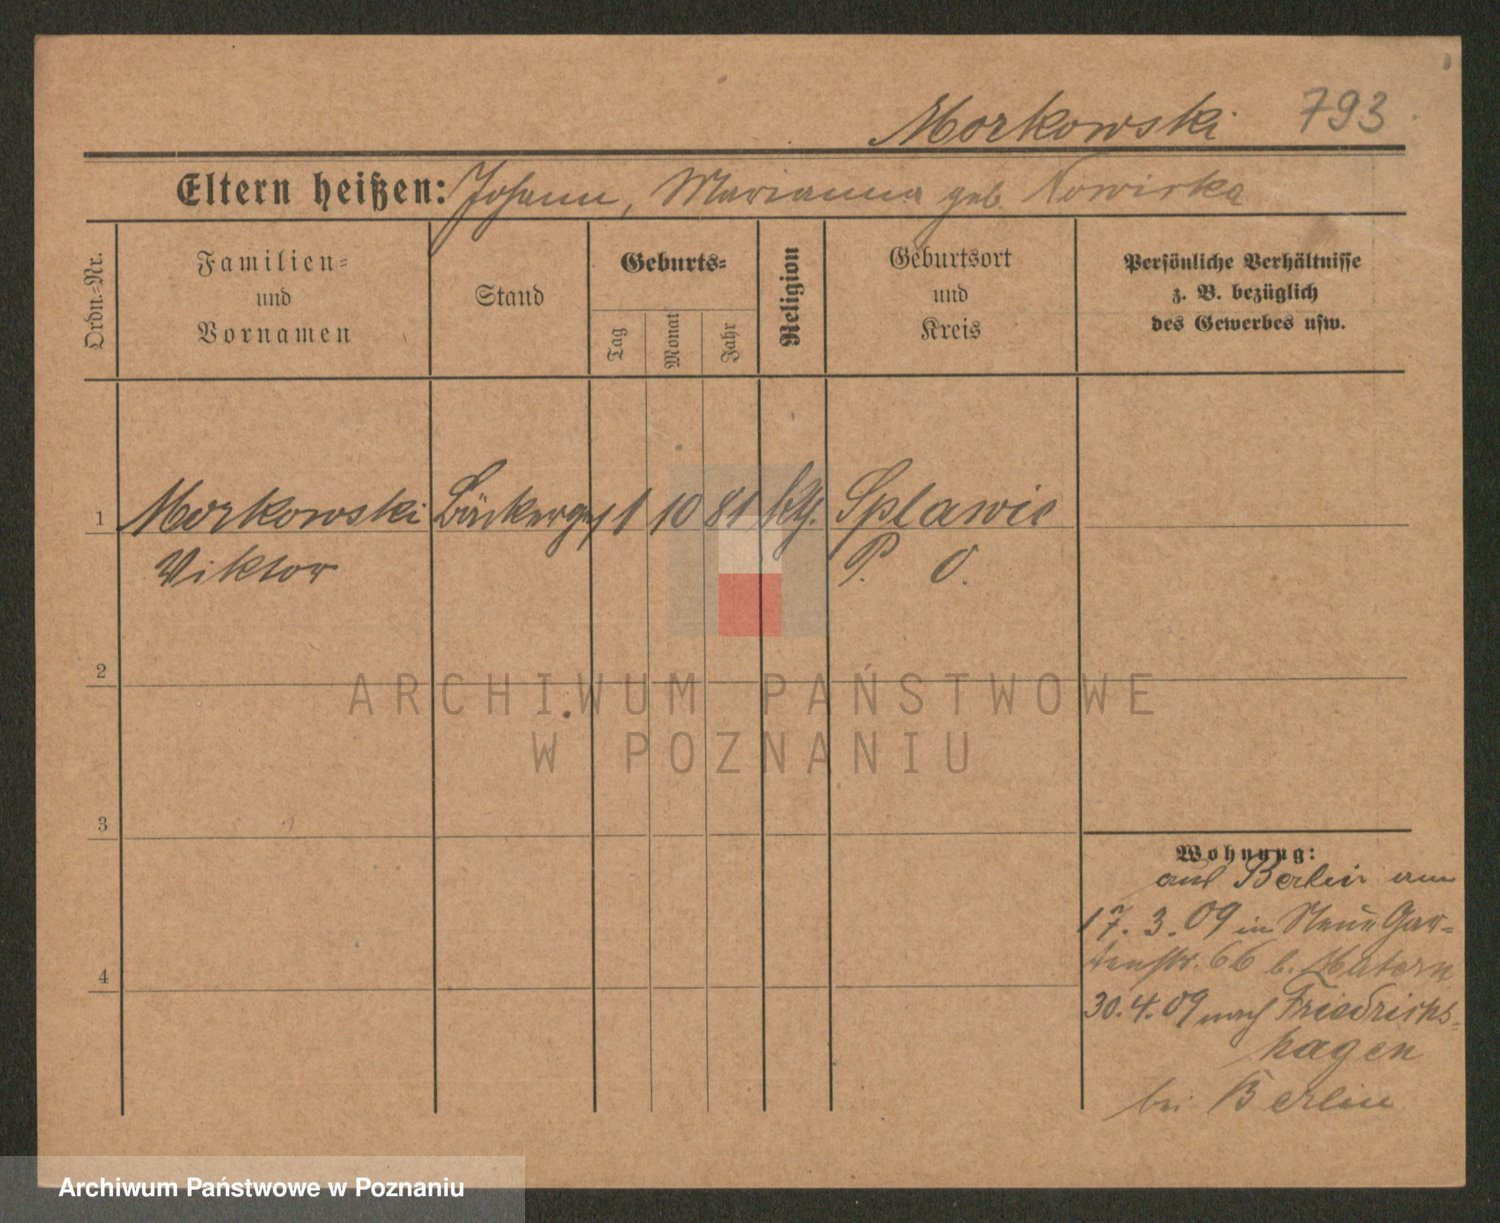 Morkowski 793
Eltern heißen: Johann, Marianna geb. Nowicka
Ordn.-Nr.
Familien-
und
Vornamen
Stand
Geburts-
Tag
Monat
Jahr
Religion
Geburtsort
und
Kreis
Persönliche Verhältnisse
z. B. bezüglich
des Gewerbes usw.
1 Morkowski Bäckerges 1 10 81 kth. Splawie
Viktor P. O.
2
ARCHIWUM PAŃSTWOWE
W POZNANIU
3
Wohnung:
aus Berlin am
17. 3. 09 in Neue Gar-
tenstr. 66 b. Matern
4
30. 4. 09 nach Friedrichs-
hagen
bei Berlin
Archiwum Państwowe w Poznaniu